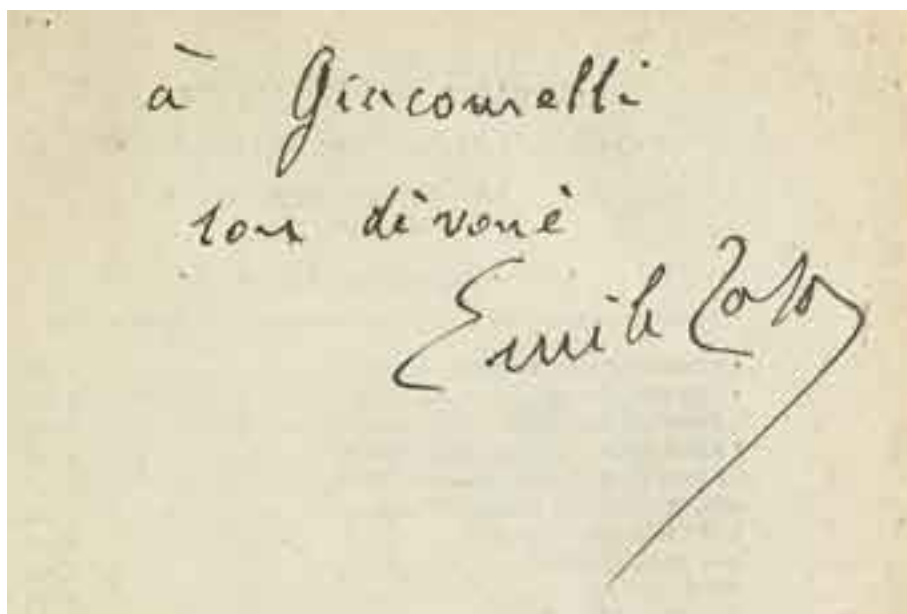 à Giacomelli
son dévoué
Emile Zola